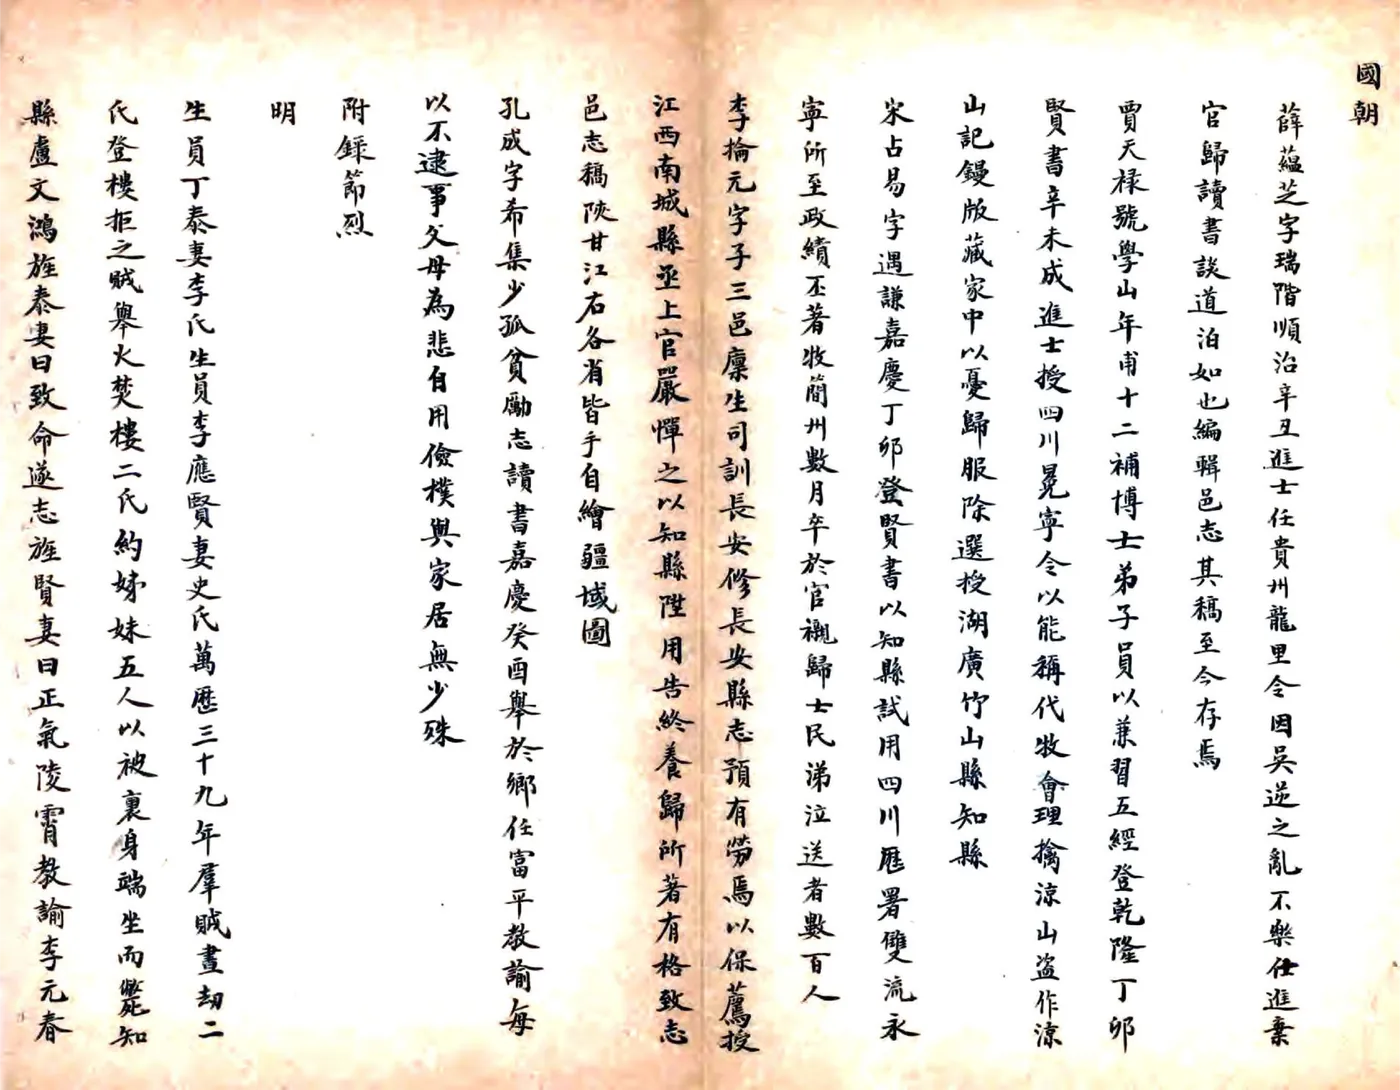 國朝
薛蘊芝字瑞階順治辛丑進士任貴州龍里令因吳逆之亂不樂仕進棄
官歸讀書談道泊如也編輯邑志其稿至今存焉
賈天祿號學山年甫十二補博士弟子員以兼習五經登乾隆丁卯
賢書辛未成進士授四川冕寧令以能稱代牧會理擒涼山盜作涼
山記鏝版藏家中以憂歸服除選授湖廣竹山縣知縣
宋占易字遇謙嘉慶丁卯登賢書以知縣試用四川歷署雙流永
寧所至政績丕著牧簡州數月卒於官櫬歸士民涕泣送者數百人
李掄元字子三邑廩生司訓長安修長安縣志預有勞焉以保薦授
江西南城縣丞上官嚴憚之以知縣陞用告終養歸所著有格致志
邑志稿陝甘江右各省皆手自繪疆域圖
孔成字希集少孤貧勵志讀書嘉慶癸酉舉於鄉任富平教諭每
以不逮事父母為悲自用儉樸與家居無少殊
附錄節烈
明
生員丁泰妻李氏生員李應賢妻史氏萬歷三十九年羣賊晝劫二
氏登樓拒之賊舉火焚樓二氏約姊妹五人以被裹身端坐而斃知
縣盧文鴻旌泰妻曰致命遂志旌賢妻曰正氣陵霄教諭李元春